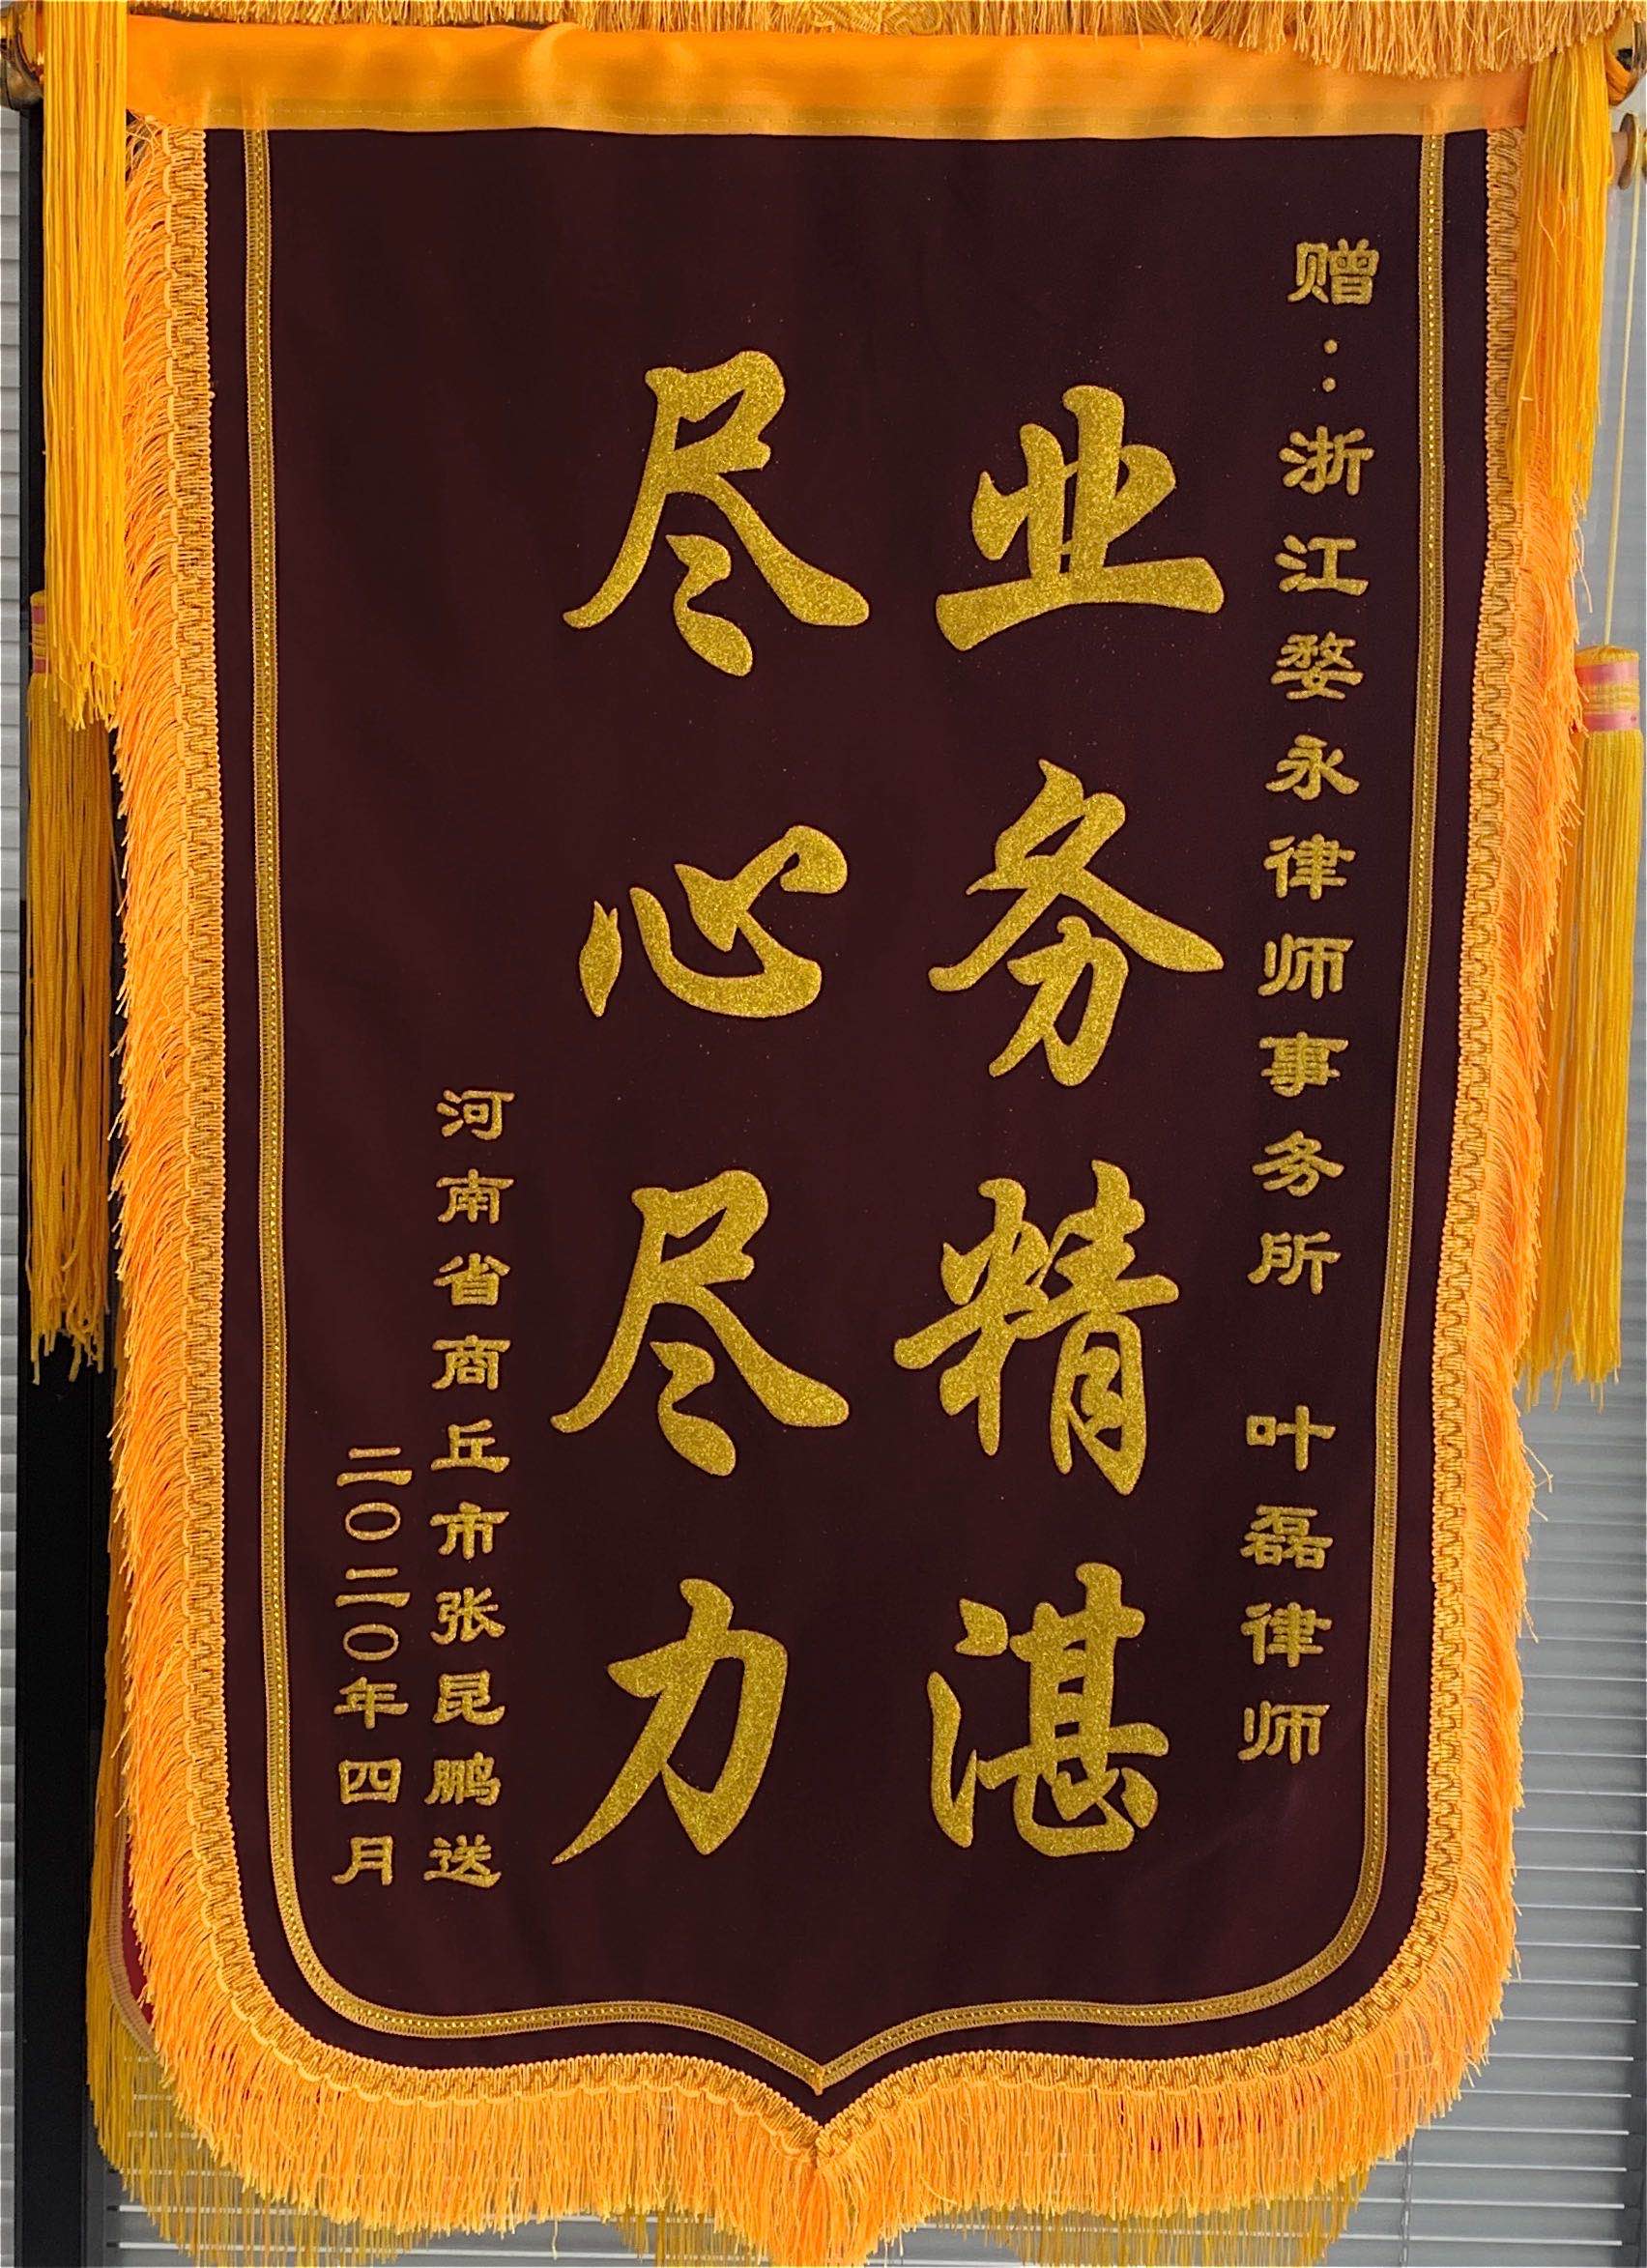 赠：浙江婺永律师事务所 叶磊律师
业务精湛
尽心尽力
河南省商丘市张昆鹏送
二〇二〇年四月